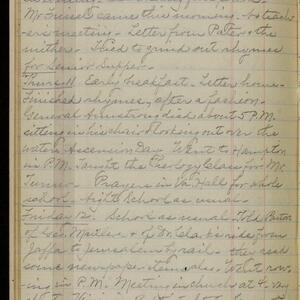 Mr. Frissell came this morning. No teach-
ers meeting. Letter from Pater & the
mither. Tried to grind out rhymes
for Senior Supper.
Thurs. 11 Early breakfast. Letter home.
Finished rhymes, after a fashion.
General Armstrong died about 5 P.M.
sitting in his chair & looking out over the
water. Ascension Day. Went to Hampton
in P.M. Taught the Theology Class for Mr.
Turner. Prayers in Va. Hall for whole
school. Night School as usual.
Friday 12. School as usual. Told
of Geo. Mueller & of Dr. Clark's ride from
Jaffa to Jerusalem by rail. then read
some newspaper items also. row-
ing in P.M. Meeting in church at 4.